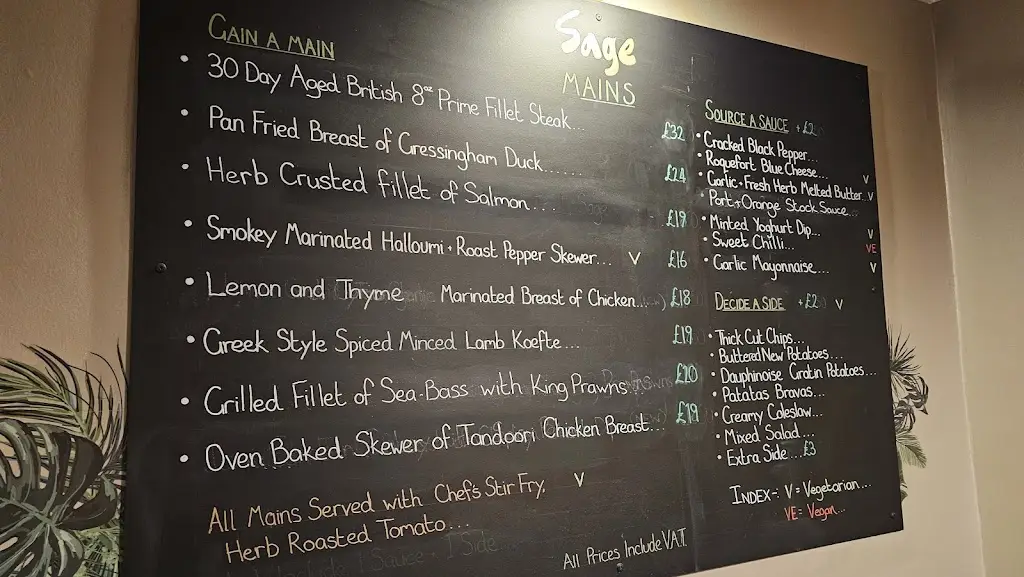 Sage
MAINS
GAIN A MAIN
• 30 Day Aged British 8oz Prime Fillet Steak... £32
• Pan Fried Breast of Gressingham Duck...... £24
• Herb Crusted fillet of Salmon.... £19
• Smokey Marinated Halloumi + Roast Pepper Skewer... V £16
• Lemon and Thyme Marinated Breast of Chicken... £18
• Greek Style Spiced Minced Lamb Koefte.... £19
• Grilled Fillet of Sea-Bass with King Prawns... £20
• Oven Baked Skewer of Tandoori Chicken Breast... £19
All Mains Served with Chef's Stir Fry, V
Herb Roasted Tomato...
All Prices Include V.A.T.
SOURCE A SAUCE +£2
• Cracked Black Pepper...
• Roquefort Blue Cheese... V
• Garlic + Fresh Herb Melted Butter.. V
• Port + Orange Stock Sauce...
• Minted Yoghurt Dip... V
• Sweet Chilli... VE
• Garlic Mayonnaise.... V
DECIDE A SIDE +£2 V
• Thick Cut Chips...
• Buttered New Potatoes...
• Dauphinoise Gratin Potatoes...
• Patatas Bravas...
• Creamy Coleslaw...
• Mixed Salad...
• Extra Side...£3
INDEX-: V = Vegetarian...
VE= Vegan...